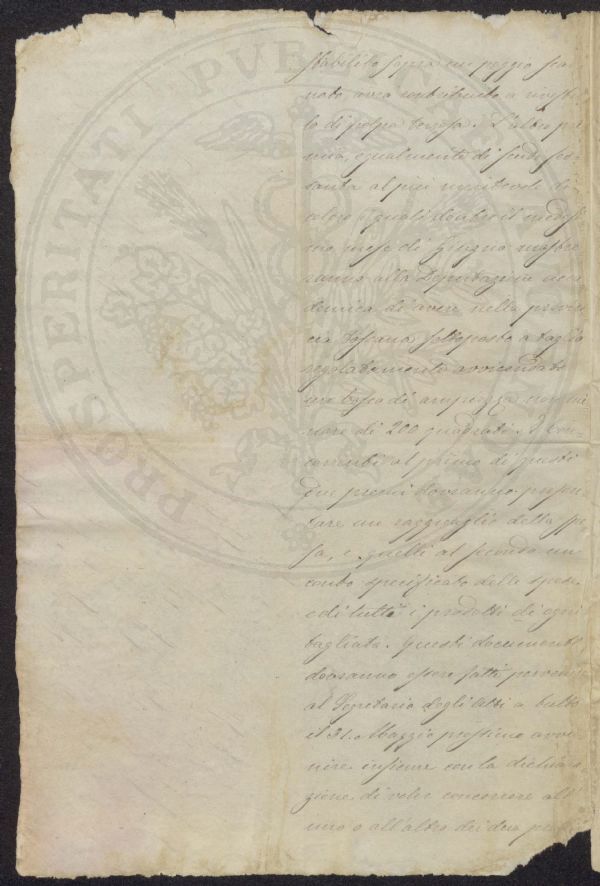 PROSPERITATI PUBL
stabilito sopra un poggio
nato avea contribuito a
lo di L'altro pre
mio, egualmente di
santa al più meritevole di
coloro i quali dentro il
mo mese di Giugno mostre
ranno alla Deputazione acca
demica di avere nella provin
cia Toscana sottoposto a taglio
regolatamente avvicendato
una bosca di ampiezza non mi
nore di 200 quadrati. I con
correnti al primo di questi
due premi dovranno presen
tare un ragguaglio della spe
sa, e quelli al secondo un
conto specificato delle spese
e di tutti i prodotti di ogni
tagliata. Questi documenti
dovranno essere fatti pervenire
al Segretario degli Atti a tutto
il 31. Maggio prossimo avve
nire insieme con la dichiara
zione di voler concorrere all'
uno o all'altro dei due pre